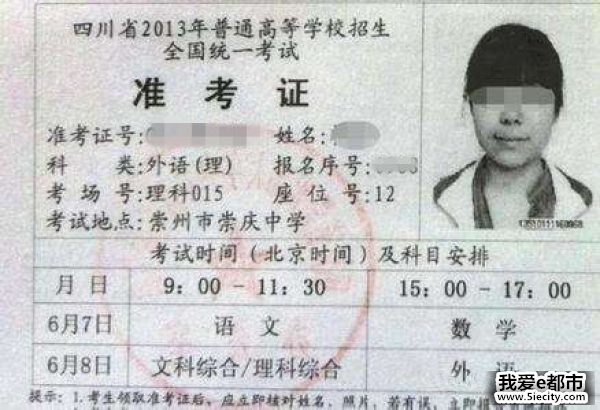 四川省2013年普通高等学校招生
全国统一考试
准考证
准考证号: 姓名:
科 类:外语(理) 报名序号:
考场号:理科015 座位号:12
考试地点:崇州市崇庆中学
考试时间(北京时间)及科目安排
月日 9:00-11:30 15:00-17:00
6月7日 语文 数学
6月8日 文科综合/理科综合 外语
提示:1.考生领取准考证后,应立即核对姓名、照片,若有误,立即
我爱e都市
www.5iecity.com